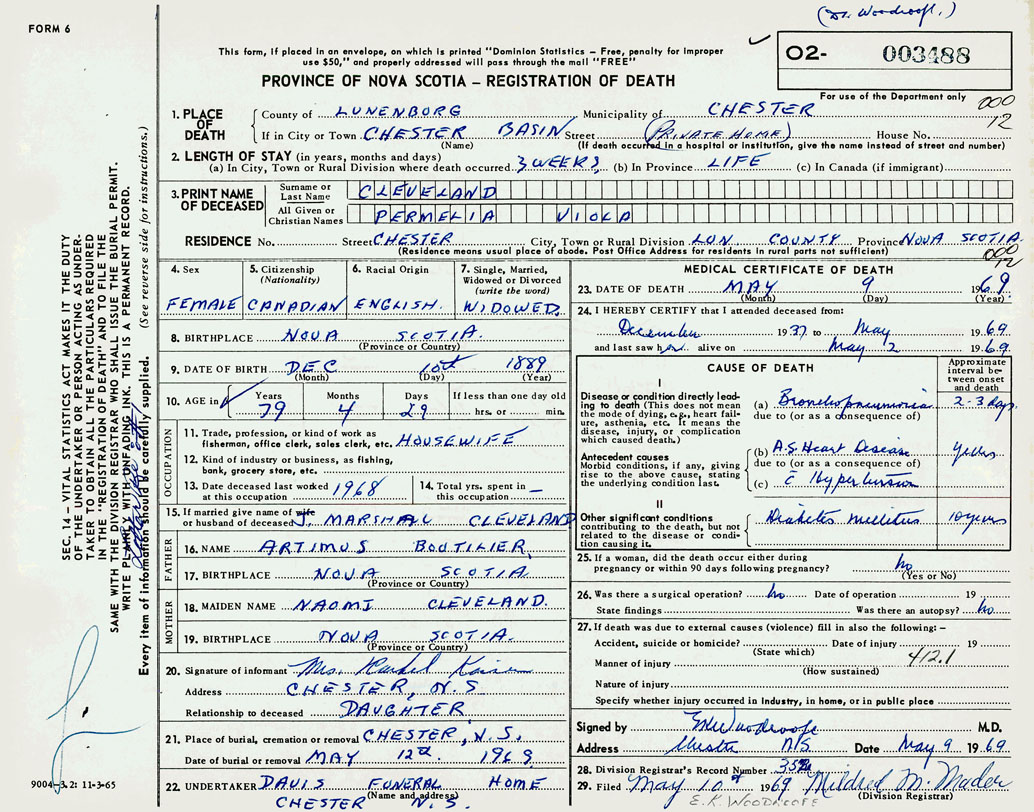 (Dr. Woodroofe.)
FORM 6
This form, if placed in an envelope, on which is printed "Dominion Statistics – Free, penalty for improper
use $50," and properly addressed will pass through the mail "FREE"
PROVINCE OF NOVA SCOTIA – REGISTRATION OF DEATH
O2- 003488
For use of the Department only
000
12
1. PLACE OF DEATH
County of LUNENBORG Municipality of CHESTER
If in City or Town CHESTER BASIN Street (PRIVATE HOME) House No.
(Name) (If death occurred in a hospital or institution, give the name instead of street and number)
2. LENGTH OF STAY (in years, months and days)
(a) In City, Town or Rural Division where death occurred 3 WEEKS (b) In Province LIFE (c) In Canada (if immigrant)
3. PRINT NAME OF DECEASED
Surname or Last Name CLEVELAND
All Given or Christian Names PERMELIA VIOLA
RESIDENCE No. Street CHESTER City, Town or Rural Division LUN. COUNTY Province NOVA SCOTIA.
(Residence means usual place of abode. Post Office Address for residents in rural parts not sufficient)
000
12
4. Sex FEMALE
5. Citizenship (Nationality) CANADIAN
6. Racial Origin ENGLISH.
7. Single, Married, Widowed or Divorced (write the word) WIDOWED.
8. BIRTHPLACE NOVA SCOTIA.
(Province or Country)
9. DATE OF BIRTH DEC 10th 1889
(Month) (Day) (Year)
10. AGE in Years Months Days If less than one day old
79 4 29 hrs. or min.
OCCUPATION
11. Trade, profession, or kind of work as
fisherman, office clerk, sales clerk, etc. HOUSEWIFE
12. Kind of industry or business, as fishing,
bank, grocery store, etc.
13. Date deceased last worked at this occupation 1968
14. Total yrs. spent in this occupation –
15. If married give name of wife
or husband of deceased J. MARSHALL CLEVELAND
FATHER
16. NAME ARTIMUS BOUTILIER,
17. BIRTHPLACE NOVA SCOTIA.
(Province or Country)
MOTHER
18. MAIDEN NAME NAOMI CLEVELAND.
19. BIRTHPLACE NOVA SCOTIA.
(Province or Country)
20. Signature of informant Mrs.
Address CHESTER, N.S
Relationship to deceased DAUGHTER
21. Place of burial, cremation or removal CHESTER, N.S.
Date of burial or removal MAY 12th 1969
22. UNDERTAKER DAVIS FUNERAL HOME
(Name and address)
CHESTER N.S.
MEDICAL CERTIFICATE OF DEATH
23. DATE OF DEATH MAY 9 1969
(Month) (Day) (Year)
24. I HEREBY CERTIFY that I attended deceased from:
December 1937 to May 1969
and last saw her alive on May 2 1969.
CAUSE OF DEATH
Approximate interval between onset and death
I
Disease or condition directly leading to death (This does not
mean the mode of dying, e.g., heart failure, asthenia, etc. It means the
disease, injury, or complication
which caused death.)
(a) Bronchopneumonia 2-3 days
due to (or as a consequence of)
Antecedent causes
Morbid conditions, if any, giving
rise to the above cause, stating
the underlying condition last.
(b) A.S. Heart Disease years
due to (or as a consequence of)
(c) c̄ Hypertension
II
Other significant conditions
contributing to the death, but not
related to the disease or condition causing it.
Diabetes mellitus 10 years
25. If a woman, did the death occur either during
pregnancy or within 90 days following pregnancy? no
(Yes or No)
26. Was there a surgical operation? no Date of operation 19
State findings Was there an autopsy? no
27. If death was due to external causes (violence) fill in also the following: –
Accident, suicide or homicide? Date of injury 19
(State which)
Manner of injury 412.1
(How sustained)
Nature of injury
Specify whether injury occurred in Industry, in home, or in public place
Signed by EKWoodroofe M.D.
Address Chester N/S Date May 9 1969
28. Division Registrar's Record Number
29. Filed May 10th 1969 Mildred M. Mader
(Division Registrar)
E.K. WOODROOFE
SEC. 14 – VITAL STATISTICS ACT MAKES IT THE DUTY
OF THE UNDERTAKER OR PERSON ACTING AS UNDERTAKER TO OBTAIN ALL THE PARTICULARS REQUIRED
IN THE "REGISTRATION OF DEATH" AND TO FILE THE
SAME WITH THE DIVISION REGISTRAR WHO SHALL ISSUE THE BURIAL PERMIT.
WRITE PLAINLY WITH UNFADING INK. THIS IS A PERMANENT RECORD.
Every item of information should be carefully supplied. (See reverse side for instructions.)
9004-3.2: 11-3-65